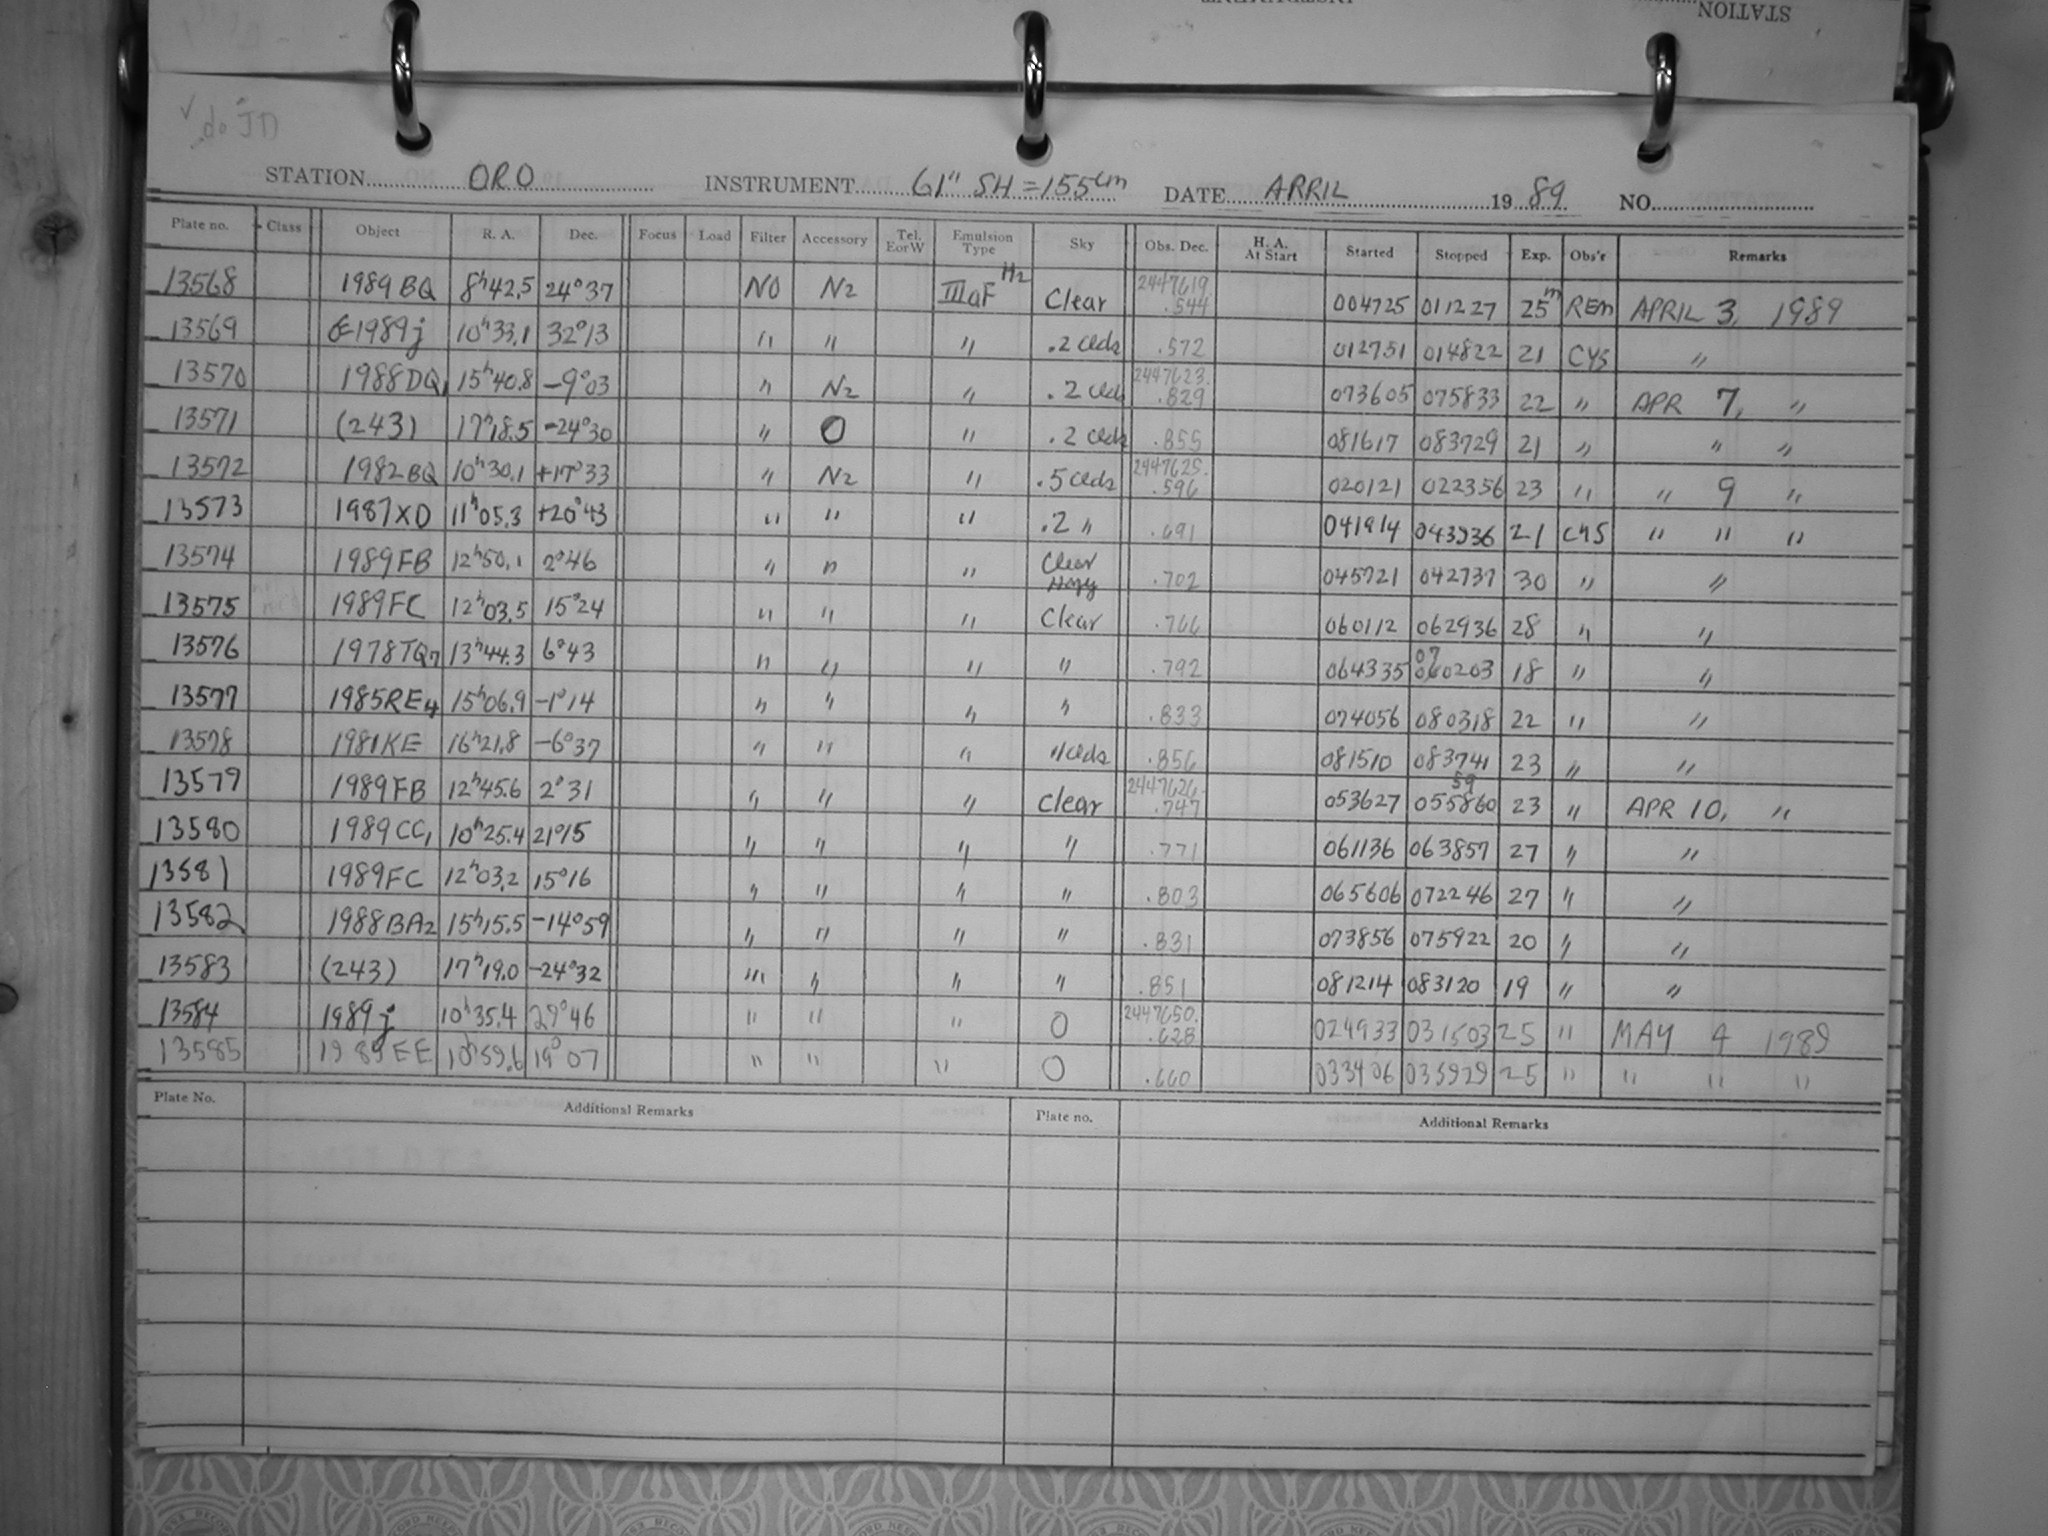 STATION
INSTRUMENT
do JD
STATION ORO INSTRUMENT 61" SH = 155cm DATE APRIL 1989 NO.
Plate no. Class Object R. A. Dec. Focus Load Filter Accessory Tel. E or W Emulsion Type Sky Obs. Dec. H. A. At Start Started Stopped Exp. Obs'r Remarks
13568 1989 BQ 8h42.5 24°37 NO N2 IIIaF H2 Clear 2447619 .544 004725 011227 25m REM APRIL 3, 1989
13569 1989j 10h33.1 32°13 " " " .2 clds .572 012751 014822 21 CYS "
13570 1988DQ1 15h40.8 -9°03 " N2 " .2 cld 2447623. .829 073605 075833 22 " APR 7, "
13571 (243) 17h18.5 -24°30 " O " .2 clds .855 081617 083729 21 " " "
13572 1982BQ 10h30.1 +17°33 " N2 " .5 clds 2447625. .596 020121 022356 23 " " 9 "
13573 1987XD 11h05.3 +20°43 " " " .2 " .691 041914 043936 21 CYS " " "
13574 1989FB 12h50.1 2°46 " " " Clear .702 045721 042737 30 " "
13575 1989FC 12h03.5 15°24 " " " Clear .766 060112 062936 28 " "
13576 1978TQ7 13h44.3 6°43 " " " " .792 064335 07 060203 18 " "
13577 1985RE4 15h06.9 -1°14 " " " " .833 074056 080318 22 " "
13578 1981KE 16h21.8 -6°37 " " " clds .856 081510 083741 23 " "
13579 1989FB 12h45.6 2°31 " " " Clear 2447626. .747 053627 055860 59 23 " APR 10, "
13580 1989CC1 10h25.4 21°15 " " " " .771 061136 063857 27 " "
13581 1989FC 12h03.2 15°16 " " " " .803 065606 072246 27 " "
13582 1988BA2 15h15.5 -14°59 " " " " .831 073856 075922 20 " "
13583 (243) 17h19.0 -24°32 " " " " .851 081214 083120 19 " "
13584 1989j 10h35.4 29°46 " " " O 2447650. .628 024933 031503 25 " MAY 4 1989
13585 1989EE 10h59.6 19°07 " " " O .660 033406 035929 25 " " " "
Plate No. Additional Remarks Plate no. Additional Remarks